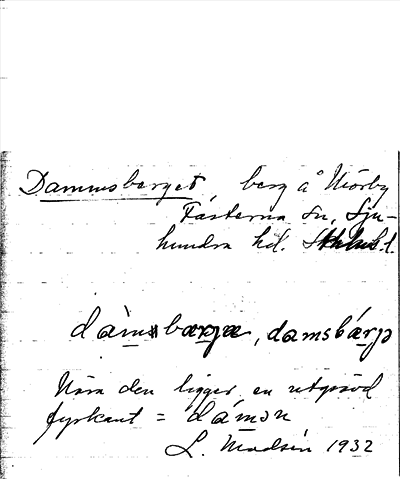 Dammsberget, berg å Mörby
Fasterna sn, Sju-
hundra hd. Sthlms l.
dàmsbærjæ, damsbárjə
Nära den ligger en utgrävd
fyrkant = dámən
L. Modsén 1932